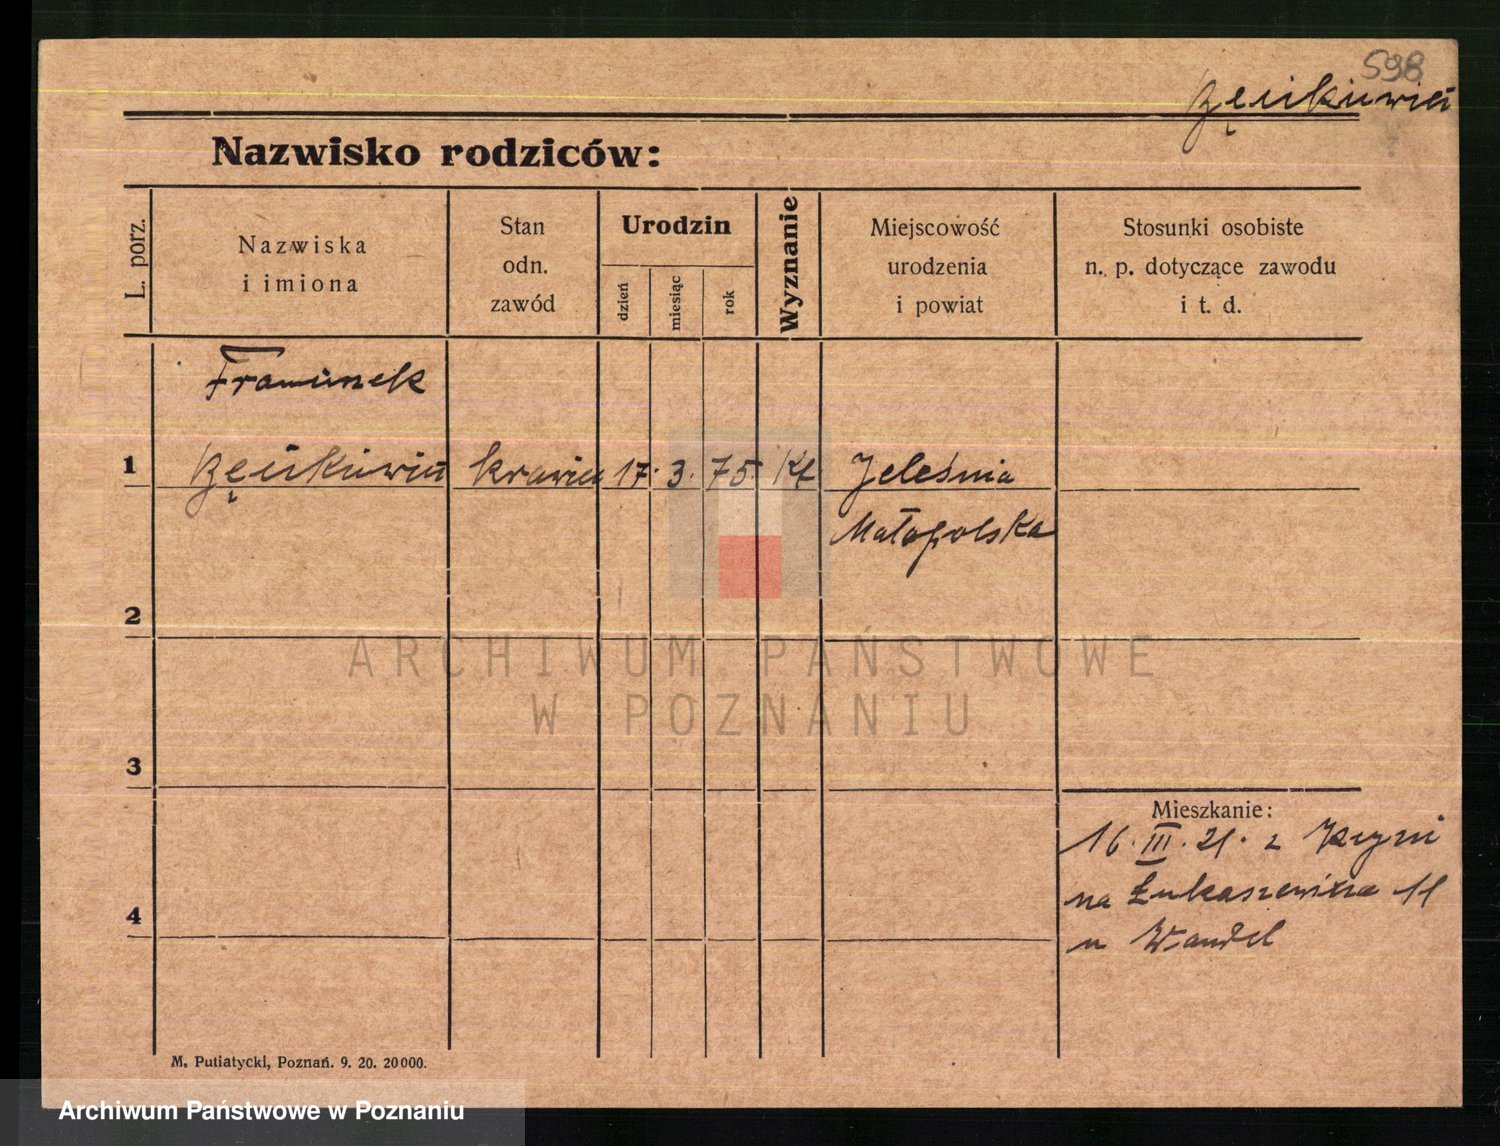 598
Nazwisko rodziców:
L. porz.
Nazwiska
i imiona
Stan
odn.
zawód
Urodzin
dzień
miesiąc
rok
Wyznanie
Miejscowość
urodzenia
i powiat
Stosunki osobiste
n. p. dotyczące zawodu
i t. d.
1
17. 3. 75. Kt Jeleśnia
Małopolska
2
ARCHIWUM PAŃSTWOWE
W POZNANIU
3
Mieszkanie:
16. III. 21. z
na Łukaszewicza 11
4
u Wandel
M. Putiatycki, Poznań. 9. 20. 20000.
Archiwum Państwowe w Poznaniu